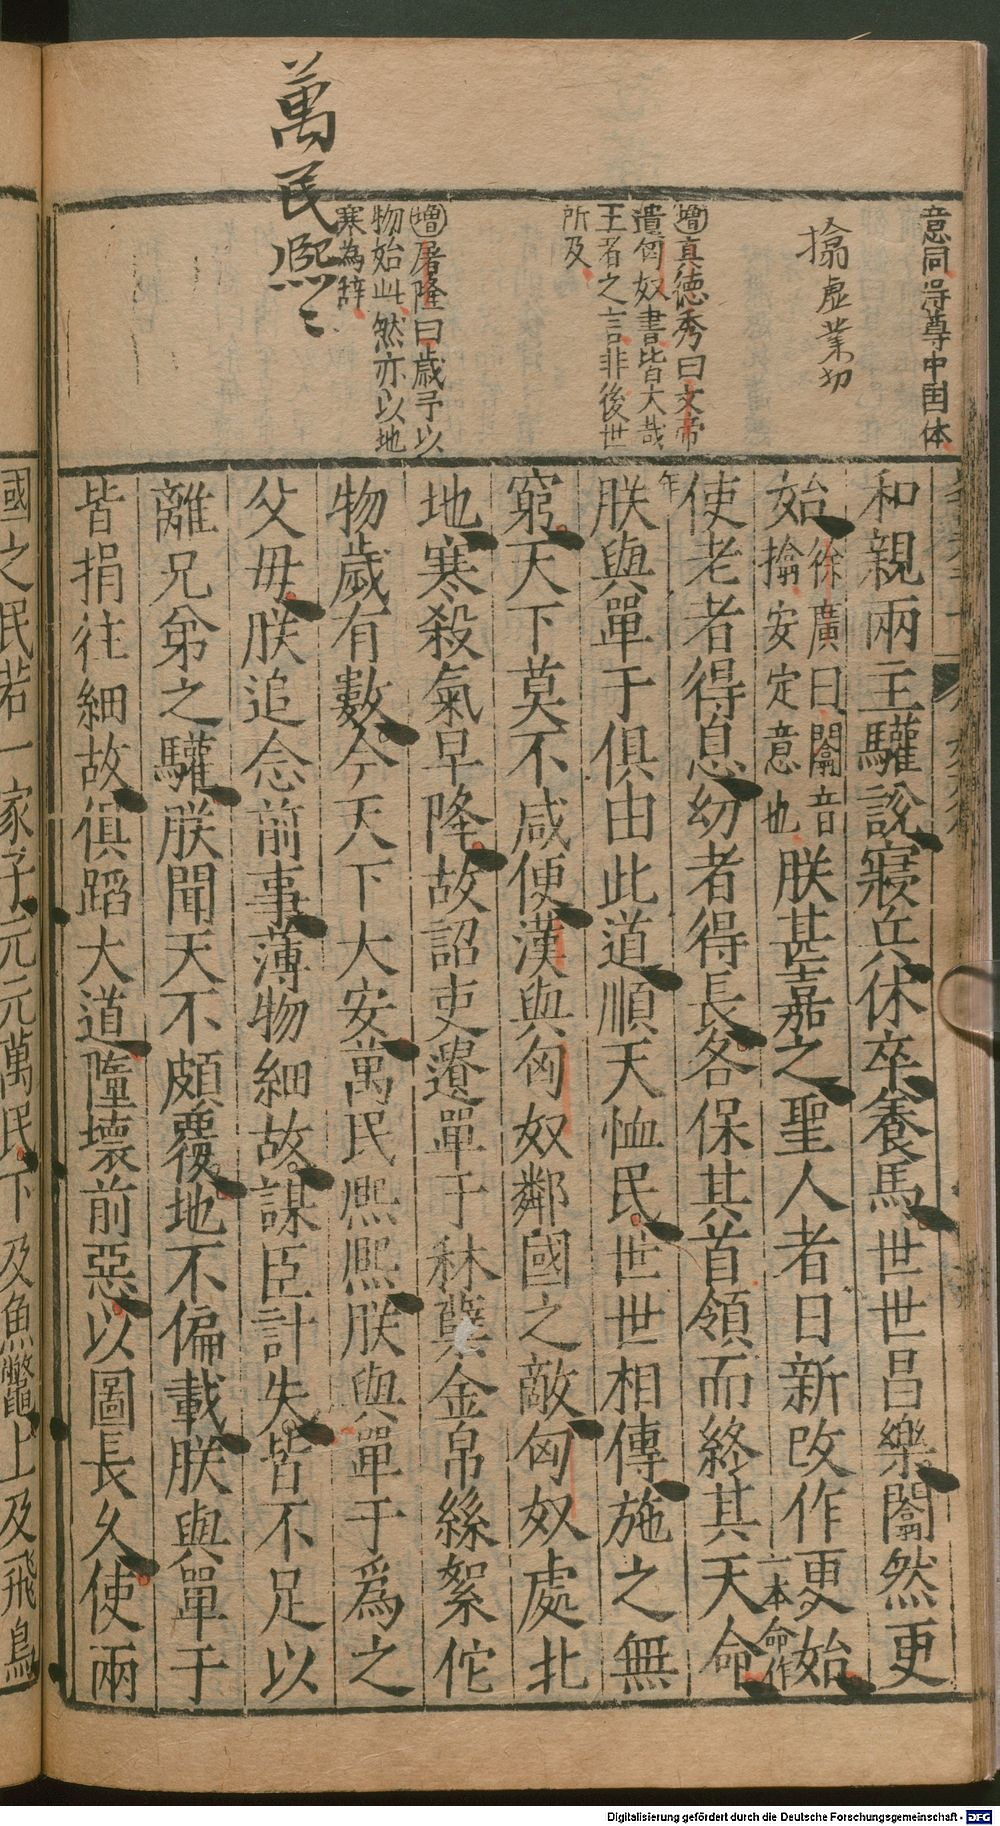 意同得尊中国体
搚虛業切
增真德秀曰文帝
遺匈奴書皆大哉
王者之言非後世
所及
增屠隆曰歲予以
物始此然亦以地
寒為辞
萬民熙〻
和親兩主驩說寢兵休卒養馬世世昌樂闟然更
始
徐廣曰闟音
搚安定意也
朕甚嘉之聖人者日新改作更始
使老者得息幼者得長各保其首領而終其天命
一本命作
年
朕與單于俱由此道順天恤民世世相傳施之無
窮天下莫不咸便漢與匈奴鄰國之敵匈奴處北
地寒殺氣早降故詔吏遺單于秫糵金帛絲絮佗
物歲有數今天下大安萬民熙熙朕與單于爲之
父母朕追念前事薄物細故謀臣計失皆不足以
離兄弟之驩朕聞天不頗覆地不偏載朕與單于
皆捐往細故俱蹈大道隳壞前惡以圖長久使兩
國之民若一家子元元萬民下及魚鼈上及飛鳥
Digitalisierung gefördert durch die Deutsche Forschungsgemeinschaft - DFG